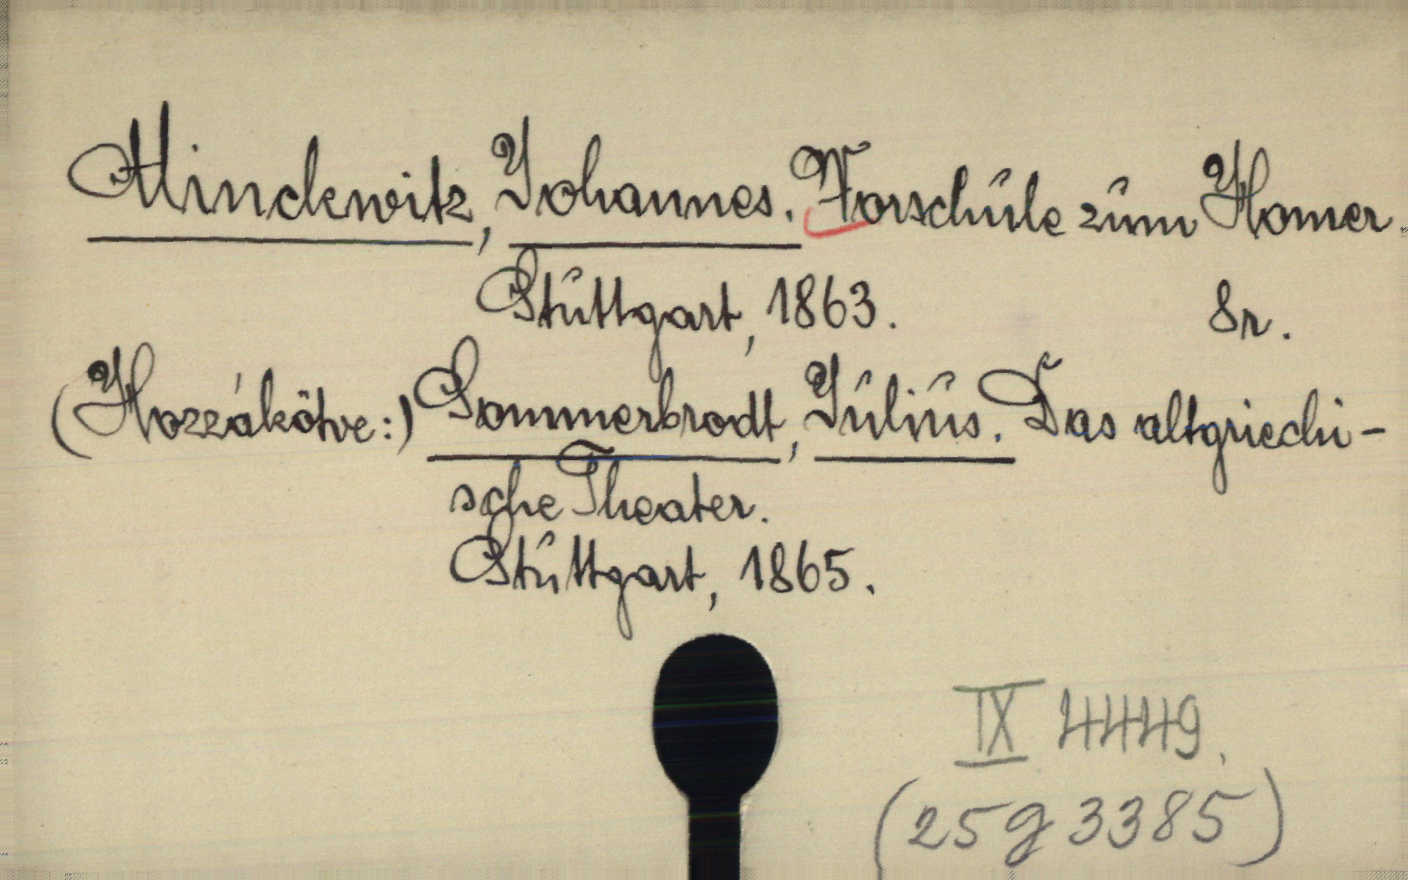 Minckwitz, Johannes. Vorschule zum Homer.
Stuttgart, 1863. 8r.
(Hozzákötve:) Sommerbrodt, Julius. Das altgriechi-
sche Theater.
Stuttgart, 1865.
IX 4449.
(25g 3385)